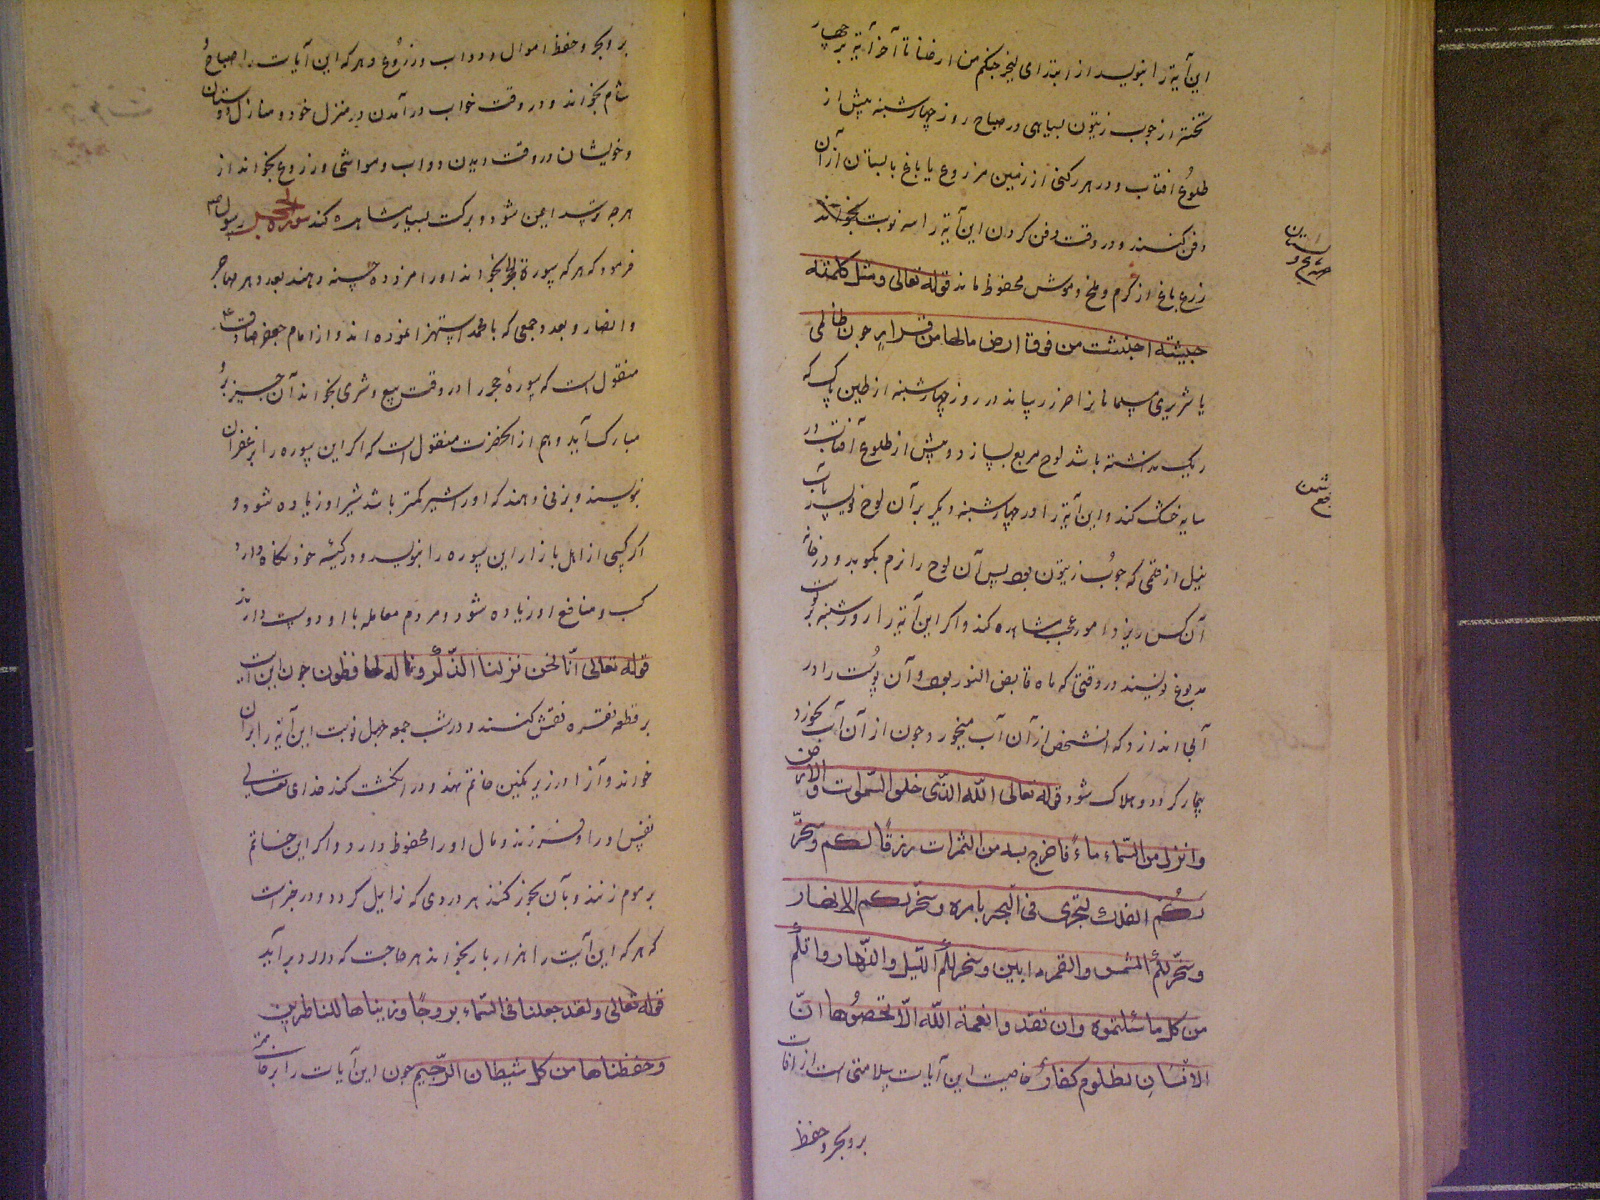 این آیة را بنویسد از ابتدای لنخرجنکم من ارضنا تا آخر آیة بر چهار
تخته از چوب زیتون بسیاهی در صباح روز چهارشنبه پیش از
طلوع افتاب و در هر رکنی از زمین مزروع یا باغ یا بستان از آن
دفن کنند و در وقت دفن کردن این آیة را سه نوبت بخواند
زرع باغ از کرم و ملخ و موش محفوظ ماند قوله تعالی ومثل کلمته
خبیثته اجتثت من فوق الارض مالها من قرار چون ظالمی
یا شریری مسلمانرا ضرر رساند در روز چهارشنبه از طین پاک که
ریک نداشته باشد لوح مربع بسازد و پیش از طلوع آفتاب در
سایه خشک کند و این آیة را در چهارشنبه دیکر بر آن لوح نویسد بآب
آن لوح را نرم بکوبد و در خانه
آن کس ریزد امور عجب مشاهده کند و اکر این آیة را روز شنبه بر پوست
مدبوغ نویسند در وقتی که ماه ناقص النور بود و آن پوست را در
آبی اندازد که آنشخص از آن آب میخورد چون از آن آب بخورد
بیمار کردد و هلاک شود قوله تعالی اللّه الذّی خلق السّموات والارض
وانزل من السّماء ماءً فاخرج به من الثمرات رزقًا لکم وسخّر
لکم الفلک لتجری فی البحر بامره وسخّر لکم الانهار
وسخّر لکم الشمس والقمر دابین وسخر لکم اللّیل والنّهار واتکم
من کل ما سئلتموه وان تعدوا نعمة اللّه لا تحصوها انّ
الانسان لظلوم کفار خاصیت این آیات سلامتی است از افات
بر و بحر و حفظ
بر و بحر و حفظ اموال و دواب و زروع و هر که این آیات را صباح و
شام بخواند و در وقت خواب در آمدن در منزل خود و منازل دوستان
و خویشان و در وقت دیدن دواب و مواشی و زروع بخواند از
هر چه ترسد ایمن شود و برکت بسیار مشاهده کند سورة الحجر رسول ص
فرمود که هر که سورة الحجر بخواند او را مزد ده حسنه دهند بعدد هر مهاجر
و انصار و بعدد جمعی که با محمد استهزا نموده اند و از امام جعفر صادق ع
منقول است که سورهٔ حجر را در وقت بیع و شری بخواند آن چیز برو
مبارک آید و هم از انحضرت منقول است که اکر این سوره را بزعفران
نویسند و بزنی دهند که او را شیر کمتر باشد شیر او زیاده شود و
اکر کسی از اهل بازار این سوره را بنویسد و در کیسه خود نکاه دارد
کسب و منافع او زیاده شود و مردم معامله با او دوست دارند
قوله تعالی انّا نحن نزلنا الذّکر وانا له لحافظون چون این آیت
بر قطعه نقره نقش کنند و در شب جمعه چهل نوبت این آیة را بر آن
خوانند و آنرا در زیر نکین خاتم نهند و در انکشت کند خدای تعالی
نفس او را و فرزند و مال او را محفوظ دارد و اکر این خاتم
بر موم زنند و بآن بخور کنند هر دردی که زایل کردد و در خبر است
که هر که این آیت را هزار بار بخواند هر حاجت که دارد بر آید
قوله تعالی ولقد جعلنا فی السّماء بروجًا وزیناها للناظرین
وحفظناها من کل شیطان الرّجیم چون این آیات را بر خاتم